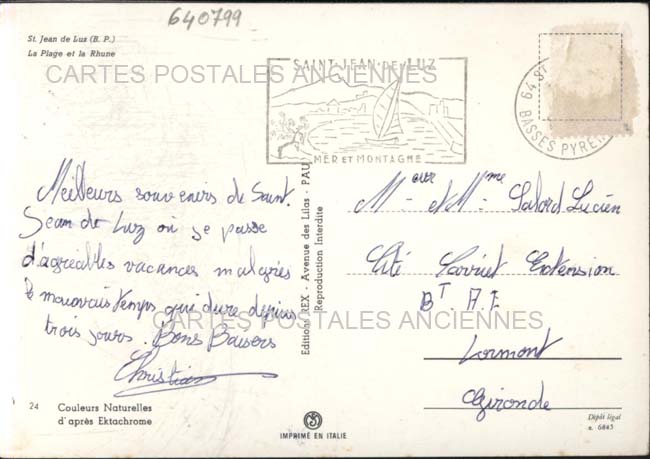 640799
St. Jean de Luz (B. P.)
La Plage et la Rhune
CARTES POSTALES ANCIENNES
SAINT-JEAN-DE-LUZ
MER ET MONTAGNE
64 ST
BASSES PYREN
Meilleurs souvenirs de Saint.
Jean de Luz où je passe
d'agréables vacances malgrés
le mauvais temps qui dure depuis
trois jours. Bons Baisers
Christian
Editions REX - Avenue des Lilas - PAU
Reproduction Interdite
Meur et Mme Salord Lucien
Cité Carriet Extension
BT. A. E.
Lormont
Gironde
CARTES POSTALES ANCIENNES
24 Couleurs Naturelles
d'après Ektachrome
IMPRIMÉ EN ITALIE
Dépôt légal
n. 6845